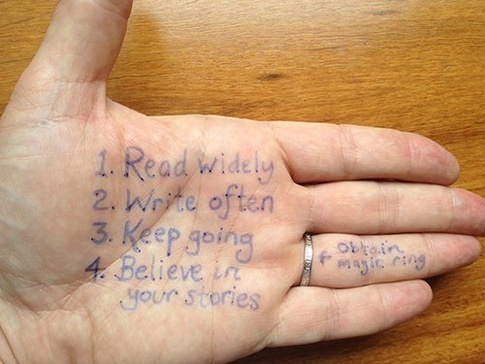 1. Read widely
2. Write often
3. Keep going
4. Believe in
your stories
↑ obtain
magic ring